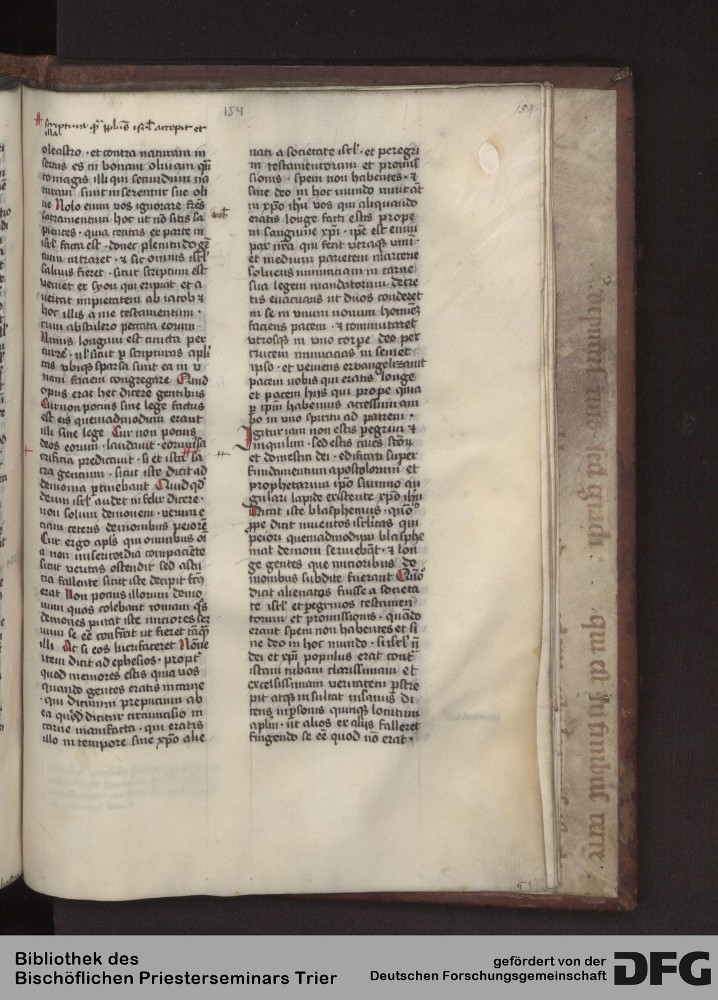 154
154
scriptura qr
illa
oleastro · et contra naturam in
sertus es in bonam oliuam qͣn
to magis illi qui secundum na
turam sunt inserentur sue oli
ue Nolo enim vos ignorare frēs
sacramentum hoc ut nō sitis sa
pientes · quia cecitas ex parte in
isrl̄ facta est · donec plenitudo gē
tium intraret · ⁊ sic omnis isrl̄
saluus fieret · sicut scriptum est
veniet ex syon qui eripiat et a
uertat impietatem ab iacob ⁊
hoc illis a me testamentum ·
cum abstulero peccata eorum ·
Nimis longum est cuncta per
currere · ul' sicut p scripturas apl'i
cas vbiqꝫ sparsa sunt ea in v
nam faciem congregare Quid
opus erat hec dicere gentibus
Cur non pocius sine lege factus
est eis quemadmodum erant
illi sine lege Cur non pocius
deos eorum · laudauit · eorum sa
crificia predicauit · si et isrl̄ sa
cra gencium · sicut iste dicit ad
demonia ptinebant Quid qd'
deum isrl̄ audet infelix dicere ·
non solum demonem · verum e
ciam ceteris demonibus peiorē
Cur ergo apl's qui omnibus oī
a non misericordia compaciente
sicut veritas ostendit sed astu
cia fallente sicut iste decipit fctꝰ
erat Non pocius illorum demo
num quos colebant romani qͦs
demones putat iste miciores ser
uum se eē confixit ut fieret tāqꝫ
illi Ac si eos lucrifaceret
item dicit ad ephesios · propt'
quod memores estis quia vos
quando gentes eratis in carne
· qui dicimini prepucium ab
ea que dicitur circumcisio in
carne manufacta · qui eratis
illo in tempore sine xp̄o alie
nati a societate isrl̄ · et peregri
ni testamentorum et promis
sionis · spem non habentes · ⁊
sine deo in hoc mundo nunc āt
in xp̄o ihū vos qui aliquando
eratis longe facti estis prope
in sanguine xp̄i · ip̄e est enim
pax nr̄a qui fecit vtraqꝫ vnū ·
et medium parietem macerie
soluens inimiciciam in carne
sua legem mandatorum decre
tis euacuans ut duos conderet
in se in vnum nouum hominē
faciens pacem · ⁊ commutaret
vtrosqꝫ in vno corpe deo per
crucem inimicicias in semet
ipso · et veniens ewangelizauit
pacem vobis qui eratis longe
et pacem hiis qui prope quia
p ip̄m habemus accessum am
bo in vno spiritu ad patrem ·
Igitur iam non estis pegrini ⁊
inquilini · sed estis ciues scōꝝ
et domestici dei · edificati super
fundamentum apostolorum et
prophetarum ip̄o summo an
gulari lapide existente xp̄o ihū
Dicat iste blasphemus · quōo
ppe dicit inuentos isrl̄itas qui
peiori quemadmodum blasphe
mat demoni seruiebāt · ⁊ lon
ge gentes que micioribus de
monibus subdite fuerant Quōo
dicit alienatas fuisse a societa
te isrl̄ et pegrinos testamen
torum et promissionis · quādo
erant spem non habentes et si
ne deo in hoc mundo · si isrl̄ n̄
dei et xp̄i populus erat contͣ
istam tubam clarissimam et
excelsissimam veritatem pstre
pit atqꝫ insultat insanus di
cens in psonis quinqꝫ locutum
aplm · ut alios ex aliis falleret
fingendo se eē quod nō erat ·
Bibliothek des
Bischöflichen Priesterseminars Trier
gefördert von der
Deutschen Forschungsgemeinschaft
DFG